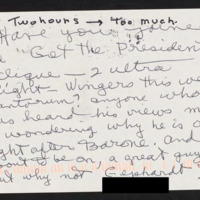 Two hours → too much.
Have you joined
"Get the President
clique — 2 ultra
right wingers this we
Santorum? anyone who
has heard his views m
wondering why he is o
right after Barone. And
about to be on, a great guy
but why not Gephardt